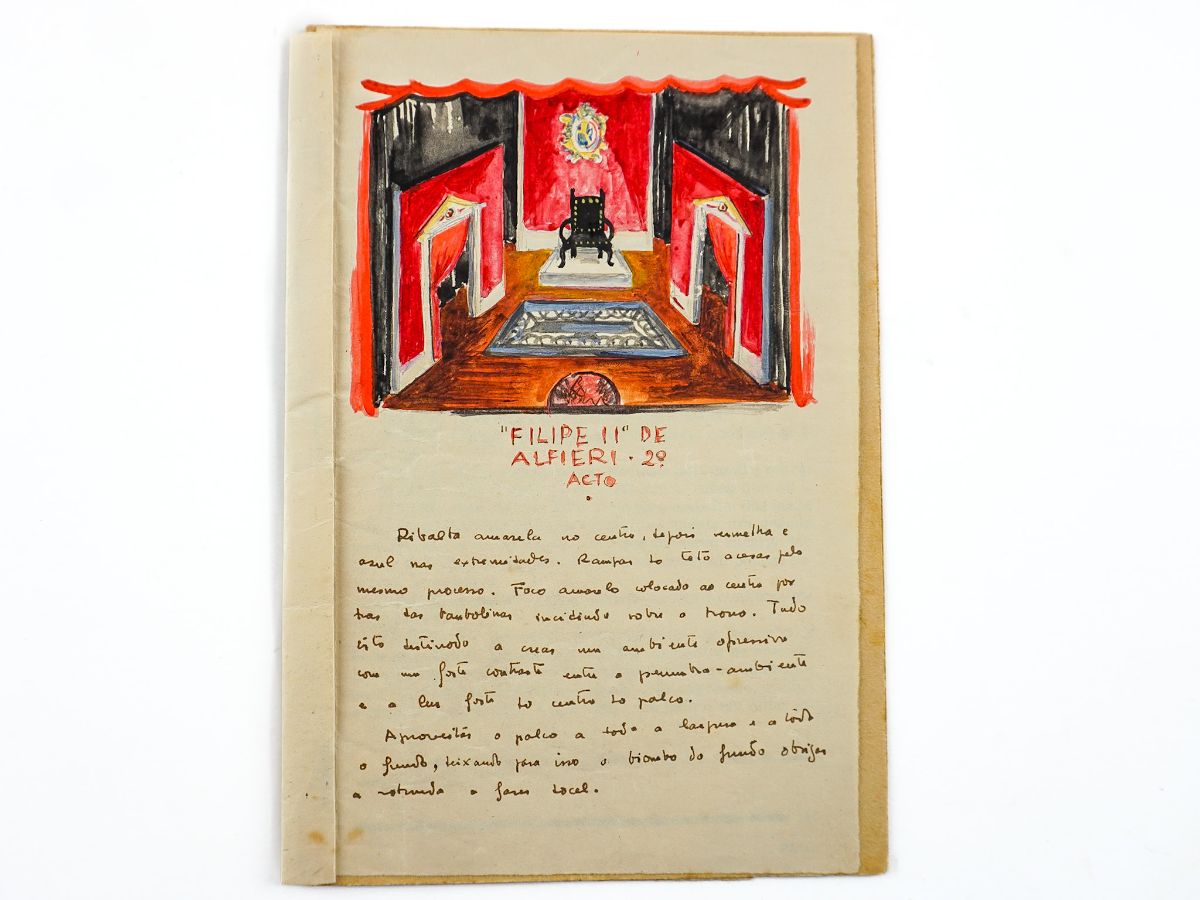 "FILIPE II" DE
ALFIERI · 2º
ACTO
Ribalta amarela no centro, depois vermelha e
azul nas extremidades. Rampas do této acesas pelo
mesmo processo. Foco amarelo colocado ao centro por
tras das bambolinas incidindo sobre o trono. Tudo
isto destinado a crear um ambiente opressivo
com um forte contraste entre a penumbra-ambiente
e a luz forte do centro do palco.
Aproveitar o palco a toda a largura e a todo
o fundo, deixando para isso o biombo do fundo obrigar
a rotunda a fazer